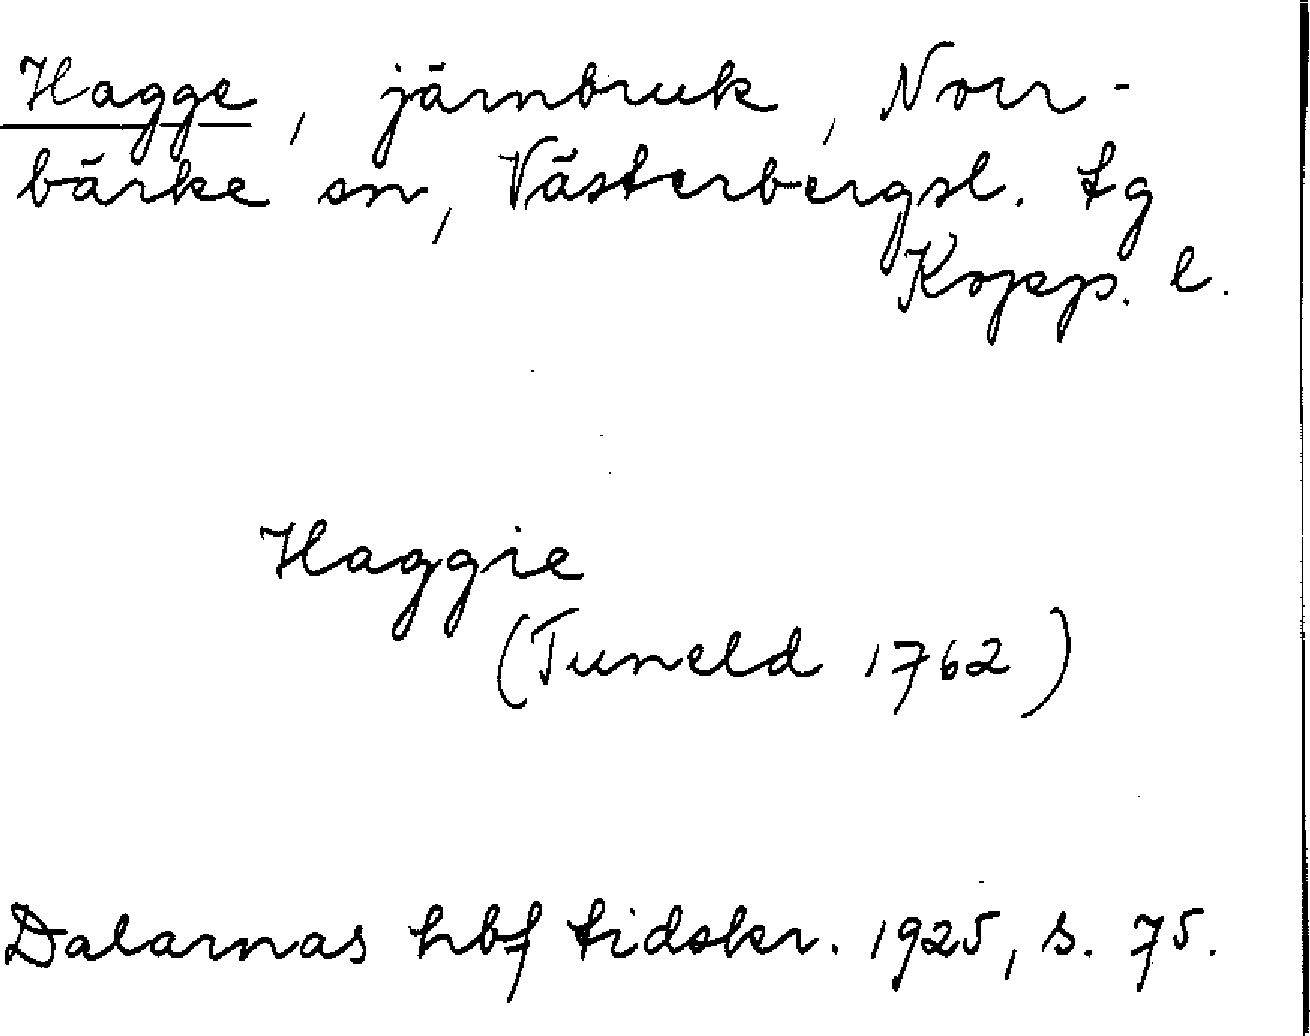 Hagge, järnbruk, Norr-
bärke sn, Västerbergsl. tg
Kopp. l.
Haggie
(Tuneld 1762)
Dalarnas hbf tidskr. 1925, s. 75.